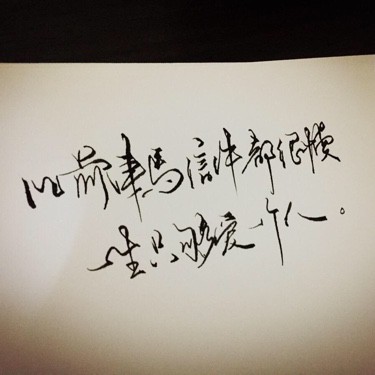 以前車馬信件都很慢
一生只够爱一个人。